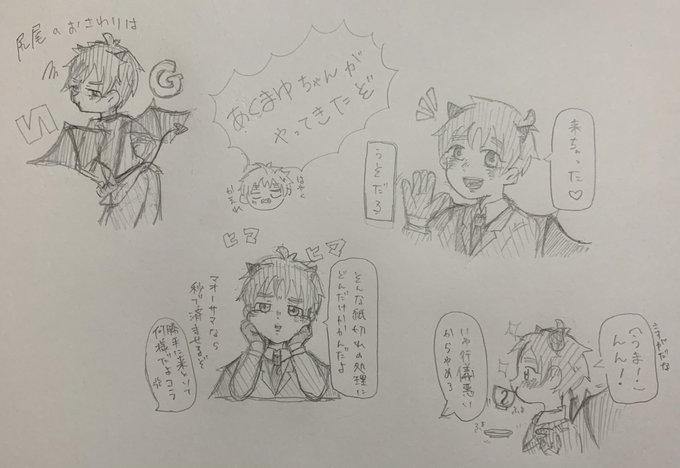 尻尾のおさわりは
N
G
あくまゆちゃんが
やってきたぞ
はやく
かえれ
来ちゃった♡
うそだろ
ヒマ
ヒマ
そんな紙切れの処理に
どんだけかかんだよ
マオーサマなら
秒で済ませるぞ
勝手に来といて
何様だよコラ
うまそだな
(うま!)
んん!
いや行儀悪い
からやめろ
2
ぷか
ぷか